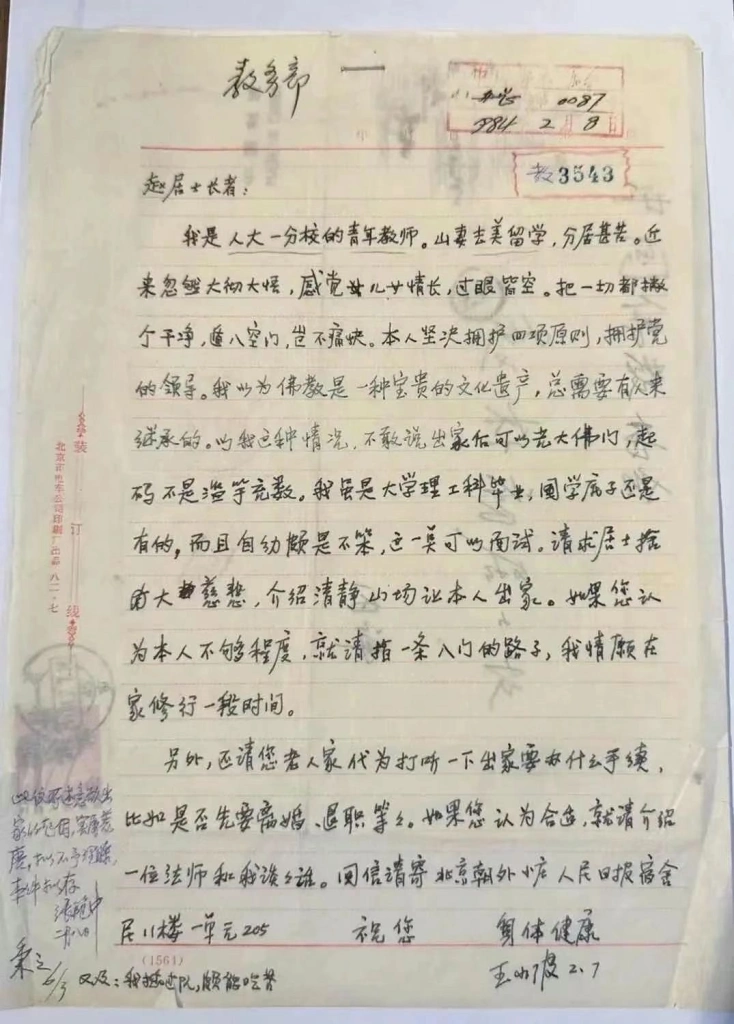 教务部
0087
1984 2月8日
教3543
赵居士长者：
我是人大一分校的青年教师。山妻去美留学，分居甚苦。近
来忽然大彻大悟，感觉儿女情长，过眼皆空。把一切都撇
个干净，遁入空门，岂不痛快。本人坚决拥护四项原则，拥护党
的领导。我以为佛教是一种宝贵的文化遗产，总需要有人来
继承的。以我这种情况，不敢说出家后可以光大佛门，起
码不是滥竽充数。我虽是大学理工科毕业，国学底子还是
有的，而且自幼颇是不笨，这一点可以面试。请求居士
大慈悲，介绍清静山场让本人出家。如果您认
为本人不够程度，就请指一条入门的路子，我情愿在
家修行一段时间。
另外，还请您老人家代为打听一下出家要办什么手续，
比如是否先要离婚、退职等々。如果您认为合适，就请介绍
一位法师和我谈々话。回信请寄北京朝外小庄人民日报宿舍
民11楼一单元205 祝您 身体健康
王小波 2.7
(1561)
又及：我插过队，颇能吃苦
装订线
北京市电车公司印刷厂出品 八二·七
家的范围，实属荒
唐，拟不予理睬，
二月八日
6/3